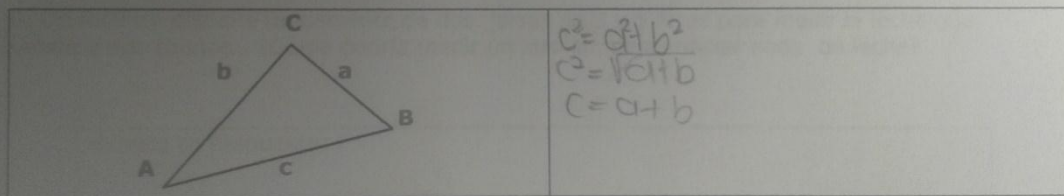 C
b a
B
A
c
c² = a² + b²
c² = √a+b
c = a + b